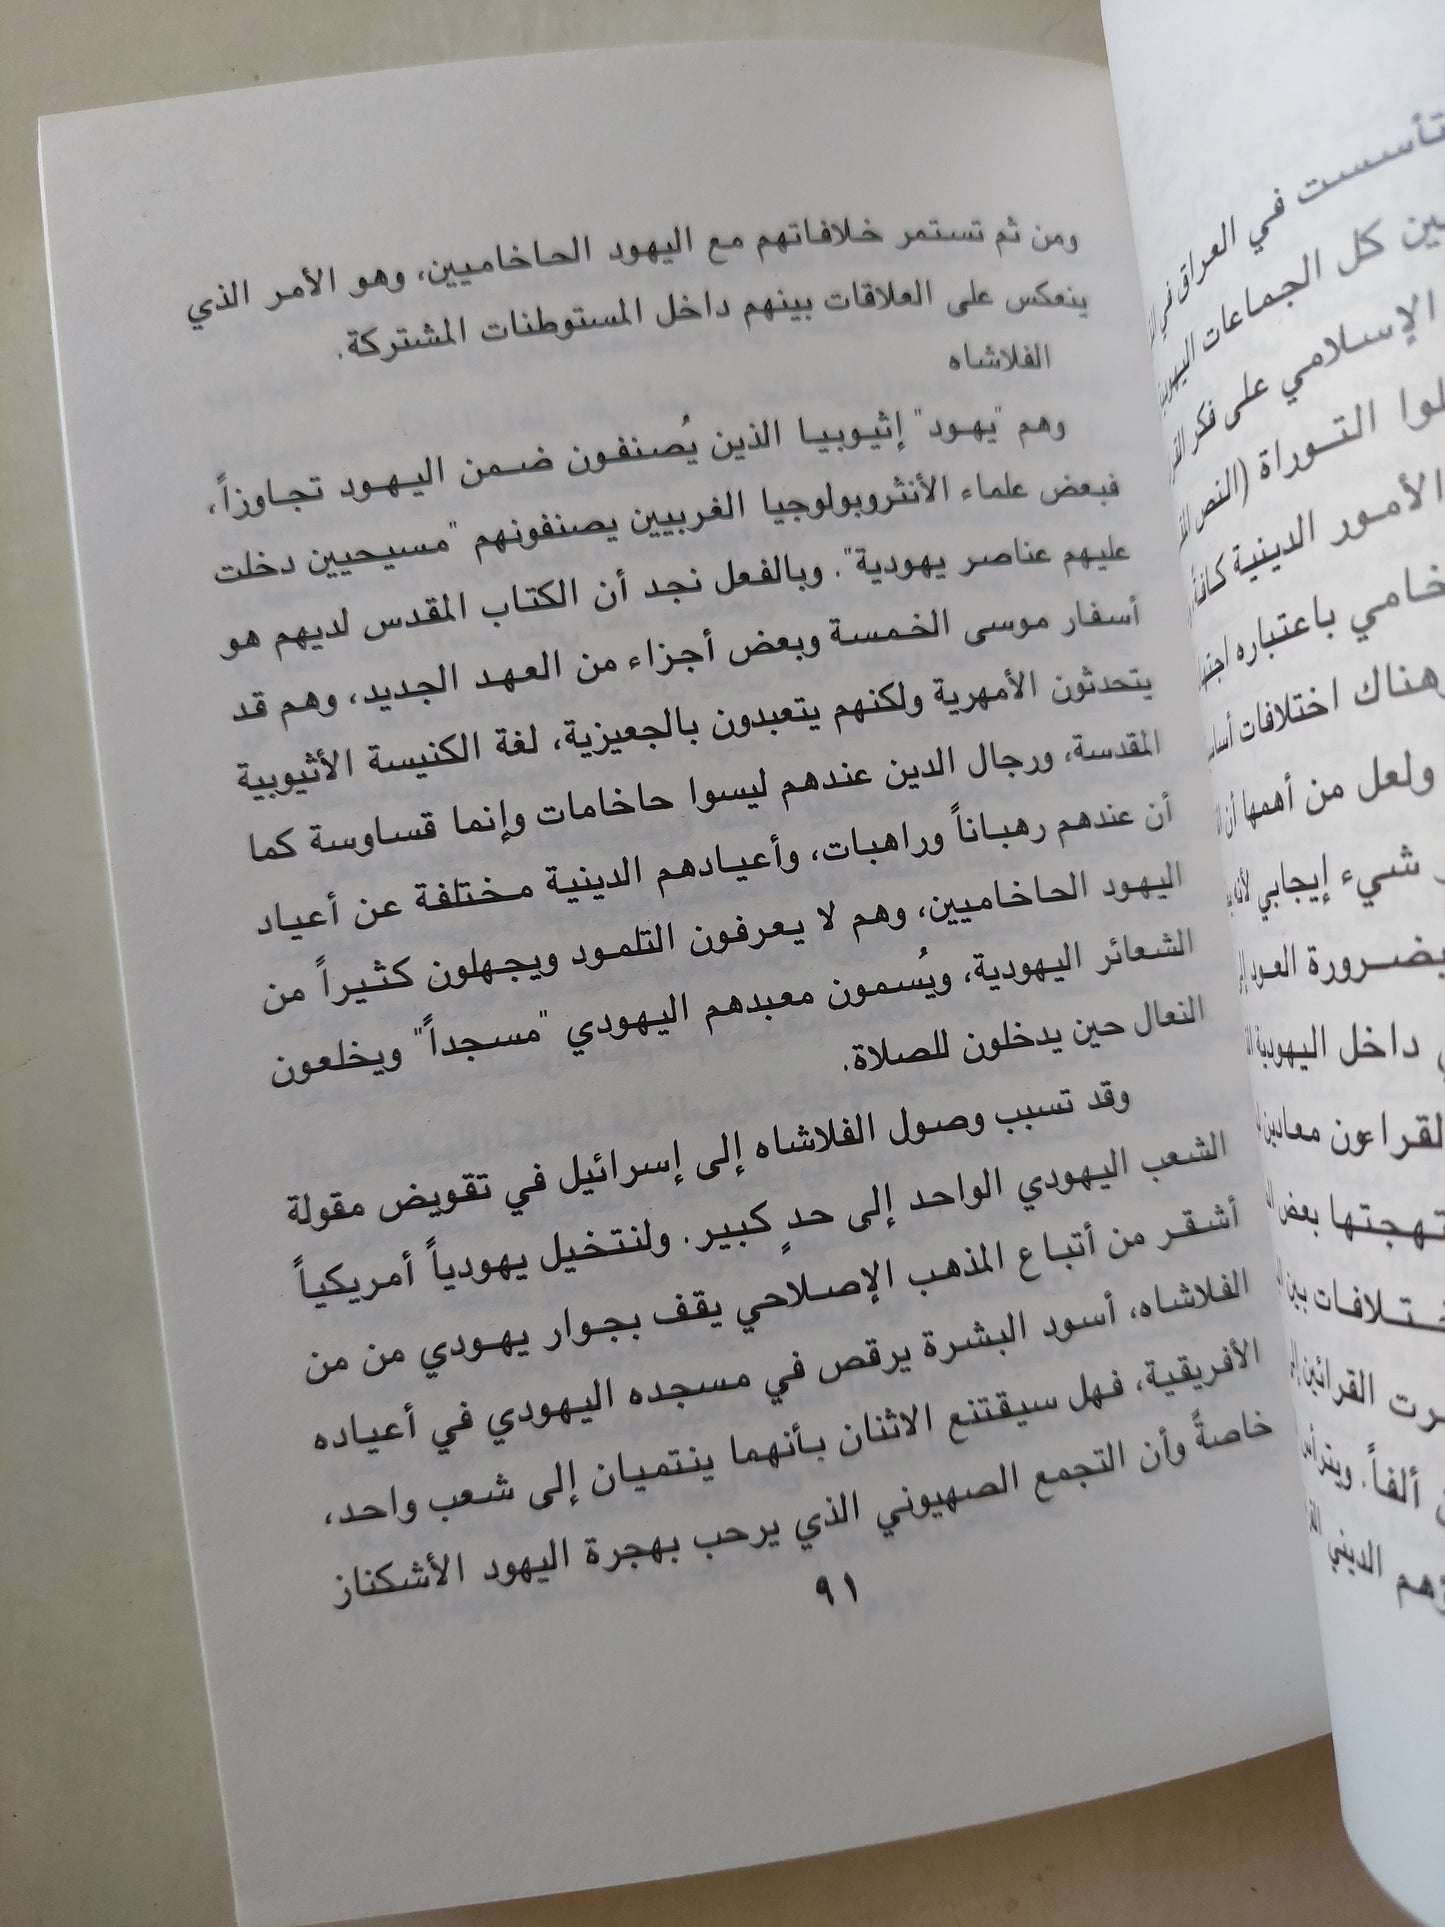 ومن ثم تستمر خلافاتهم مع اليهود الحاخاميين، وهو الأمر الذي
ينعكس على العلاقات بينهم داخل المستوطنات المشتركة.
الفلاشاه
وهم "يهود" إثيوبيا الذين يُصنفون ضمن اليهود تجاوزاً،
فبعض علماء الأنثروبولوجيا الغربيين يصنفونهم "مسيحيين دخلت
عليهم عناصر يهودية". وبالفعل نجد أن الكتاب المقدس لديهم هو
أسفار موسى الخمسة وبعض أجزاء من العهد الجديد، وهم قد
يتحدثون الأمهرية ولكنهم يتعبدون بالجعيزية، لغة الكنيسة الأثيوبية
المقدسة، ورجال الدين عندهم ليسوا حاخامات وإنما قساوسة كما
أن عندهم رهباناً وراهبات، وأعيادهم الدينية مختلفة عن أعياد
اليهود الحاخاميين، وهم لا يعرفون التلمود ويجهلون كثيراً من
الشعائر اليهودية، ويُسمون معبدهم اليهودي "مسجداً" ويخلعون
النعال حين يدخلون للصلاة.
وقد تسبب وصول الفلاشاه إلى إسرائيل في تقويض مقولة
الشعب اليهودي الواحد إلى حدٍ كبير. ولنتخيل يهودياً أمريكياً
أشقر من أتباع المذهب الإصلاحي يقف بجوار يهودي من من
الفلاشاه، أسود البشرة يرقص في مسجده اليهودي في أعياده
الأفريقية، فهل سيقتنع الاثنان بأنهما ينتميان إلى شعب واحد،
خاصةً وأن التجمع الصهيوني الذي يرحب بهجرة اليهود الأشكناز
٩١
تأسست في العراق في
كل الجماعات
الإسلامي على فكر
التوراة (النص
الأمور الدينية كافة
باعتباره
وهناك اختلافات
ولعل من أهمها أن
شيء إيجابي لأنه
بضرورة العودة
داخل اليهودية
القراءون
بعض
بين
القرائين
ألفاً.
الديني